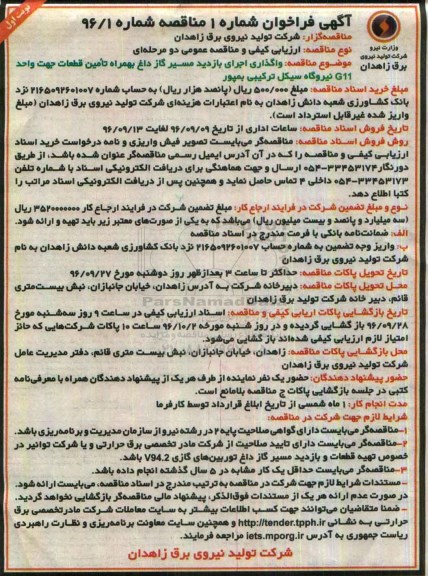 نوبت اول
آگهی فراخوان شماره ۱ مناقصه شماره ۹۶/۱
وزارت نیرو
شرکت تولید نیروی
برق زاهدان
مناقصه‌گزار: شرکت تولید نیروی برق زاهدان
نوع مناقصه: ارزیابی کیفی و مناقصه عمومی دو مرحله‌ای
موضوع مناقصه: واگذاری اجرای بازدید مسیر گاز داغ بهمراه تأمین قطعات جهت واحد
G11 نیروگاه سیکل ترکیبی بمپور
مبلغ خرید اسناد مناقصه: مبلغ ۵۰۰/۰۰۰ ریال (پانصد هزار ریال) به حساب شماره ۲۱۶۵۰۹۲۶۰۱۰۰۷ نزد
بانک کشاورزی شعبه دانش زاهدان به نام اعتبارات هزینه‌ای شرکت تولید نیروی برق زاهدان (مبلغ
واریز شده غیرقابل استرداد است).
تاریخ فروش اسناد مناقصه: ساعات اداری از تاریخ ۹۶/۰۹/۰۹ لغایت ۹۶/۰۹/۱۳
روش فروش اسناد مناقصه: مناقصه‌گر می‌بایست تصویر فیش واریزی و نامه درخواست خرید اسناد
ارزیابی کیفی و مناقصه را که در آن آدرس ایمیل رسمی مناقصه‌گر عنوان شده باشد، از طریق
دورنگار ۳۳۴۵۳۱۷۴-۰۵۴ ارسال و جهت هماهنگی برای دریافت الکترونیکی اسناد با شماره تلفن
۳۳۴۵۳۱۷۳-۰۵۴ داخلی ۴ تماس حاصل نماید و همچنین پس از دریافت الکترونیکی اسناد مراتب را
کتبا اطلاع دهد.
نوع و مبلغ تضمین شرکت در فرایند ارجاع کار: مبلغ تضمین شرکت در فرایند ارجاع کار ۳۵۲۰۰۰۰۰۰۰ ریال
(سه میلیارد و پانصد و بیست میلیون ریال) می‌باشد که به یکی از صورت‌های معتبر زیر باید تهیه و ارائه شود.
الف: ضمانت‌نامه بانکی با فرمت مندرج در اسناد مناقصه
ب: واریز وجه تضمین به شماره حساب ۲۱۶۵۰۹۲۶۰۱۰۰۷ نزد بانک کشاورزی شعبه دانش زاهدان به نام
شرکت تولید نیروی برق زاهدان
تاریخ تحویل پاکات مناقصه: حداکثر تا ساعت ۳ بعدازظهر روز دوشنبه مورخ ۹۶/۰۹/۲۷
محل تحویل پاکات مناقصه: دبیرخانه شرکت به آدرس زاهدان، خیابان جانبازان، نبش بیست‌متری
قائم، دبیر خانه شرکت تولید نیروی برق زاهدان
تاریخ بازگشایی پاکات اریابی کیفی و مناقصه: اسناد ارزیابی کیفی در ساعت ۹ روز سه‌شنبه مورخ
۹۶/۰۹/۲۸ باز گشایی گردیده و در روز شنبه مورخه ۹۶/۱۰/۲ ساعت ۱۰ پاکات شرکت‌هایی که حائز
امتیاز لازم ارزیابی کیفی شده‌اند باز گشایی می‌شود.
محل بازگشایی پاکات مناقصه: زاهدان، خیابان جانبازان، نبش بیست متری قائم، دفتر مدیریت عامل
شرکت تولید نیروی برق زاهدان
حضور پیشنهاد دهندگان: حضور یک نفر نماینده از طرف هر یک از پیشنهاد دهندگان همراه با معرفی‌نامه
کتبی در جلسه بازگشایی پاکات ج مناقصه بلامانع است.
مدت انجام کار: ۱ ماه شمسی از تاریخ ابلاغ قرارداد توسط کارفرما
شرایط لازم جهت شرکت در مناقصه:
۱-مناقصه‌گر می‌بایست دارای گواهی صلاحیت پایه ۲ در رشته نیرو از سازمان مدیریت و برنامه‌ریزی باشد.
۲-مناقصه‌گر می‌بایست دارای تایید صلاحیت از شرکت مادر تخصصی برق حرارتی و یا شرکت توانیر در
خصوص تهیه قطعات و بازدید مسیر گاز داغ توربین‌های گازی V94.2 باشد.
۳-مناقصه‌گر می‌بایست حداقل یک کار مشابه در ۵ سال گذشته انجام داده باشد.
-مستندات شرایط لازم جهت شرکت در مناقصه به ترتیب مندرج در اسناد مناقصه، می‌بایست ارائه شود.
در صورت عدم ارائه هر یک از مستندات فوق‌الذکر، پیشنهاد مالی مناقصه‌گر بازگشایی نخواهد گردید.
- ضمنا متقاضیان می‌توانند جهت کسب اطلاعات بیشتر به سایت معاملات شرکت مادرتخصصی برق
حرارتی به نشانی http://tender.tpph.ir و همچنین سایت معاونت برنامه‌ریزی و نظارت راهبردی
ریاست جمهوری به آدرس iets.mporg.ir مراجعه فرمایند.
شرکت تولید نیروی برق زاهدان